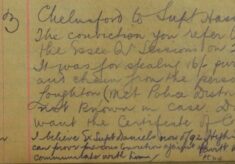 3
Chelmsford to Supt Hass
The conviction you refer
the Essex Qr Sessions on
It was for stealing 16/- purse
and chain from the person
Loughton (Met Police Distri
not known in case, d
want the Certificate of C
I believe Dr Supt Daniels now of 92
can prove previous conviction against
communicate with him